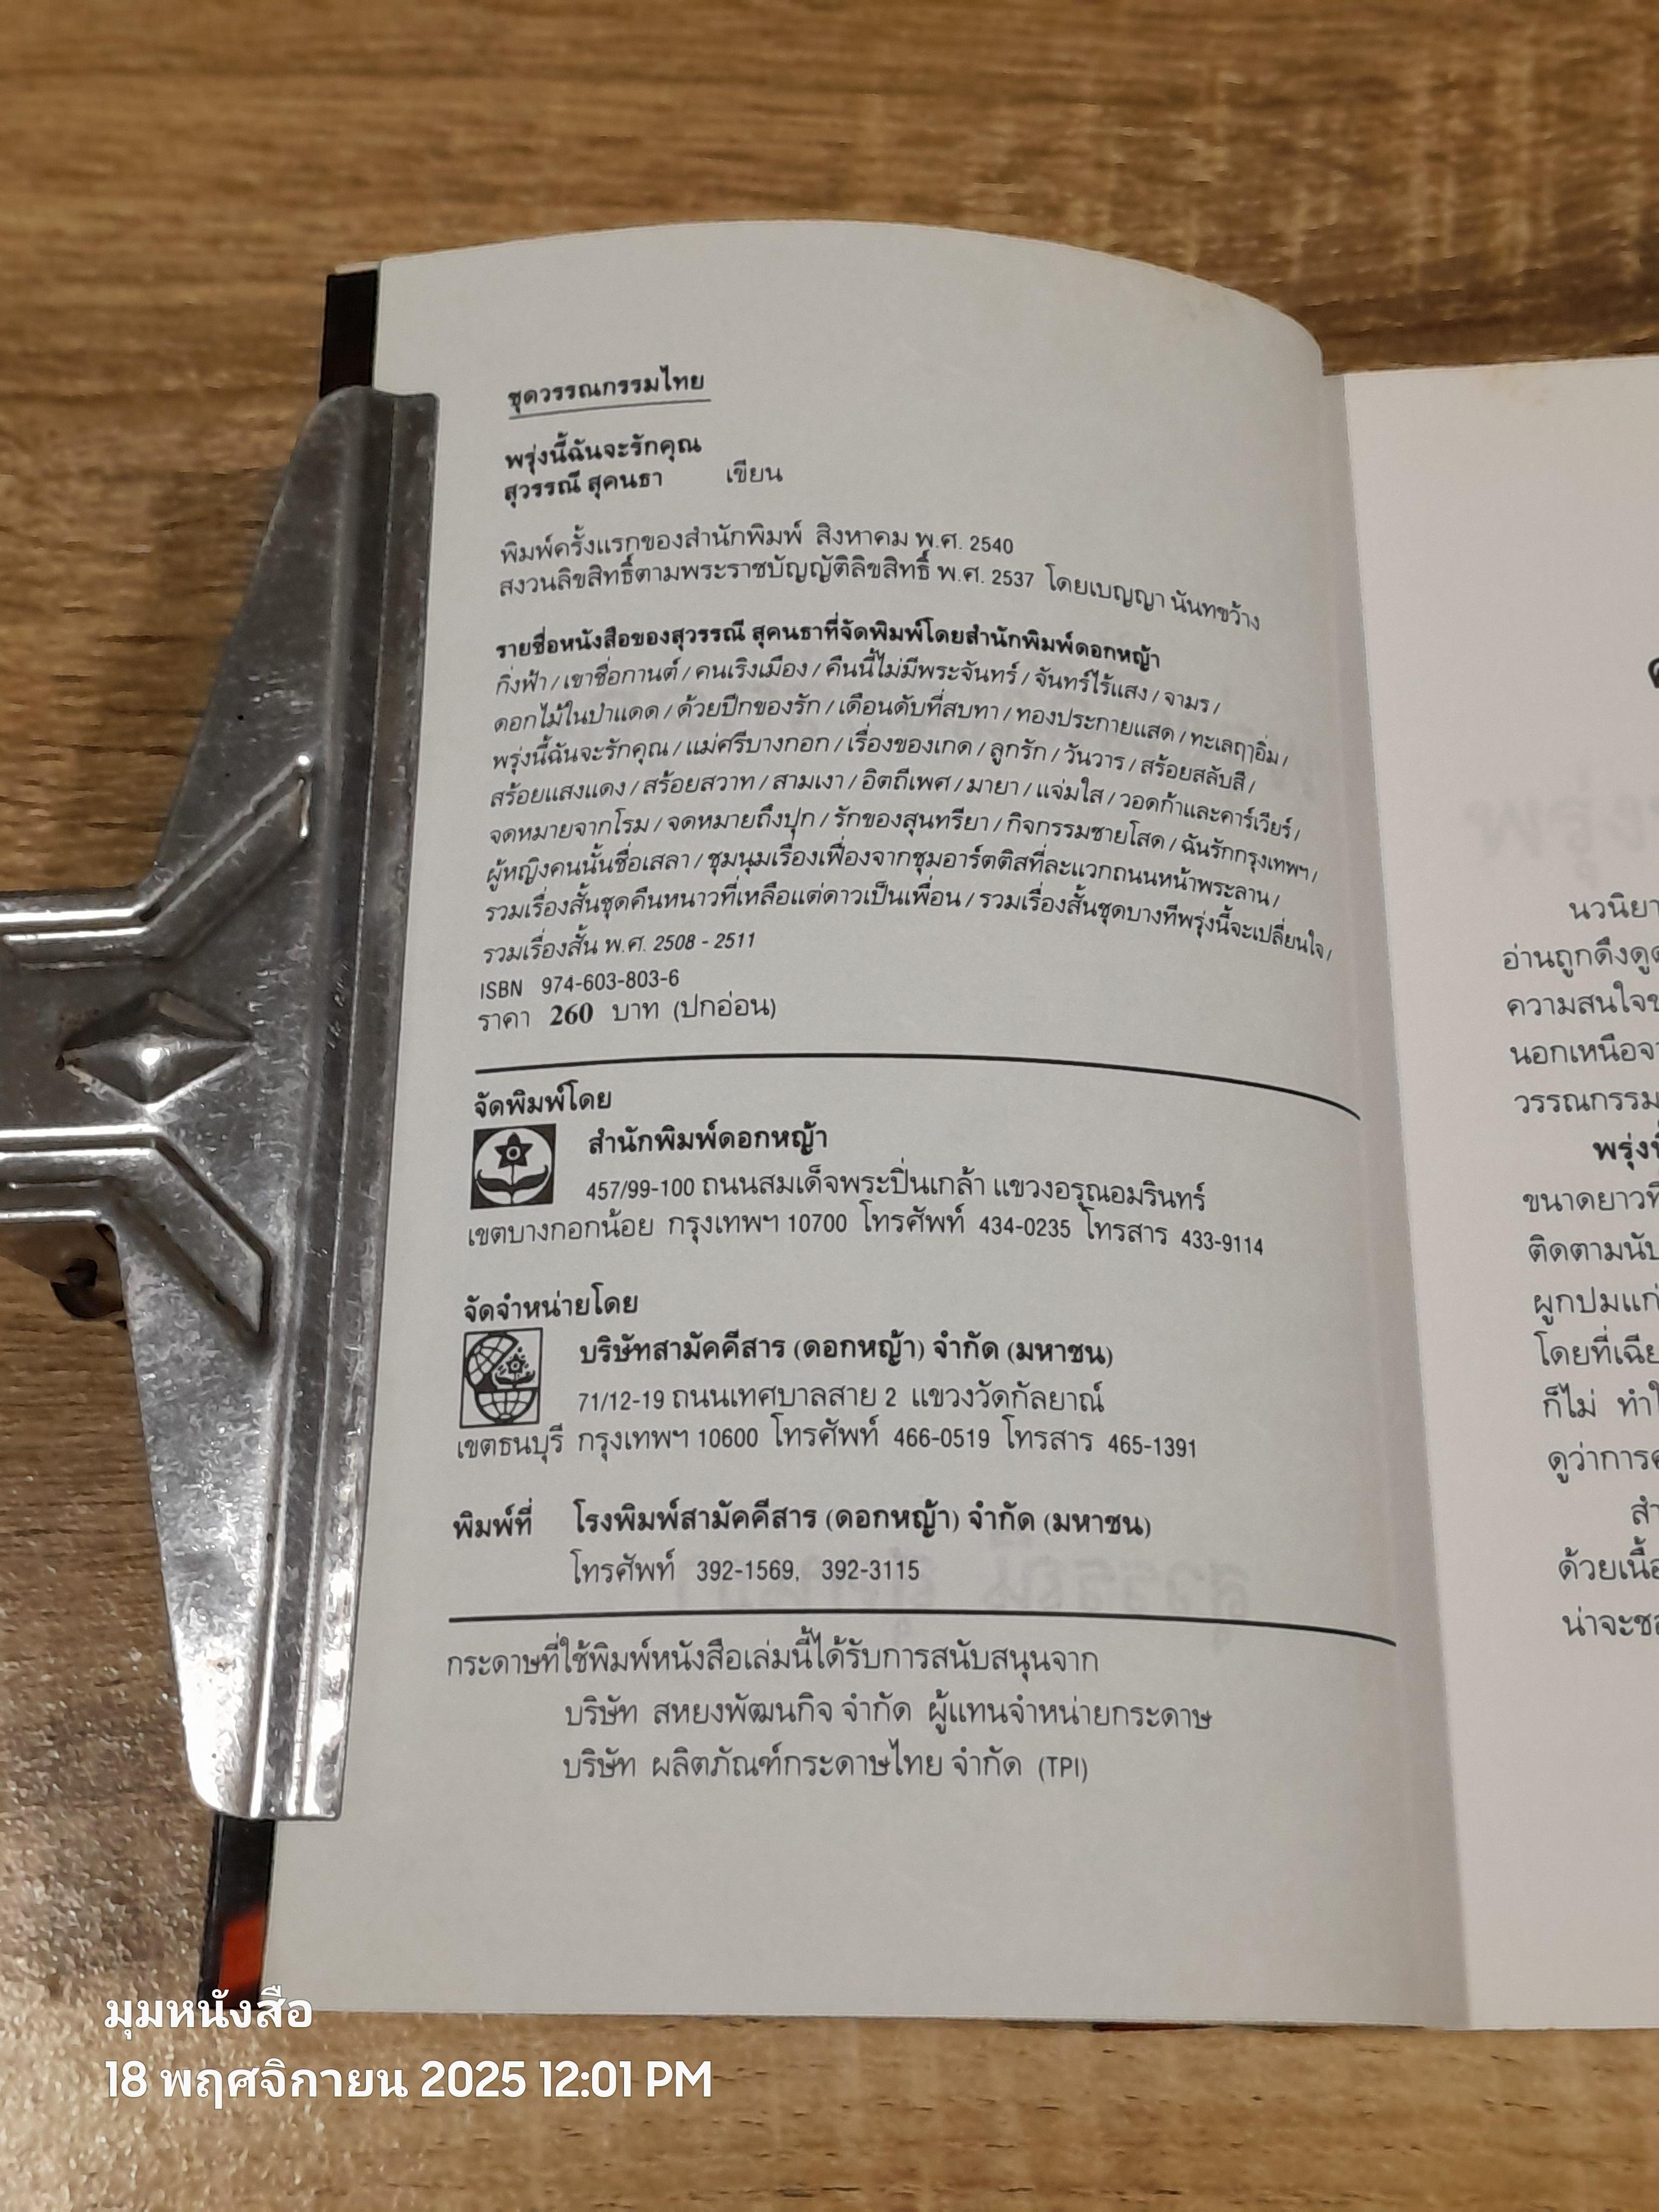 ชุดวรรณกรรมไทย
พรุ่งนี้ฉันจะรักคุณ
สุวรรณี สุคนธา เขียน
พิมพ์ครั้งแรกของสำนักพิมพ์ สิงหาคม พ.ศ. 2540
สงวนลิขสิทธิ์ตามพระราชบัญญัติลิขสิทธิ์ พ.ศ. 2537 โดยเบญญา นันทขว้าง
รายชื่อหนังสือของสุวรรณี สุคนธาที่จัดพิมพ์โดยสำนักพิมพ์ดอกหญ้า
กิ่งฟ้า / เขาชื่อกานต์ / คนเริงเมือง / คืนนี้ไม่มีพระจันทร์ / จันทร์ไร้แสง / จามร /
ดอกไม้ในป่าแดด / ด้วยปีกของรัก / เดือนดับที่สบทา / ทองประกายแสด / ทะเลฤาอิ่ม /
พรุ่งนี้ฉันจะรักคุณ / แม่ศรีบางกอก / เรื่องของเกด / ลูกรัก / วันวาร / สร้อยสลับสี /
สร้อยแสงแดง / สร้อยสวาท / สามเงา / อิตถีเพศ / มายา / แจ่มใส / วอดก้าและคาร์เวียร์ /
จดหมายจากโรม / จดหมายถึงปุก / รักของสุนทรียา / กิจกรรมชายโสด / ฉันรักกรุงเทพฯ /
ผู้หญิงคนนั้นชื่อเสลา / ชุมนุมเรื่องเฟื่องจากชุมอาร์ตติสที่ละแวกถนนหน้าพระลาน /
รวมเรื่องสั้นชุดคืนหนาวที่เหลือแต่ดาวเป็นเพื่อน / รวมเรื่องสั้นชุดบางทีพรุ่งนี้จะเปลี่ยนใจ /
รวมเรื่องสั้น พ.ศ. 2508 - 2511
ISBN 974-603-803-6
ราคา 260 บาท (ปกอ่อน)
จัดพิมพ์โดย
สำนักพิมพ์ดอกหญ้า
457/99-100 ถนนสมเด็จพระปิ่นเกล้า แขวงอรุณอมรินทร์
เขตบางกอกน้อย กรุงเทพฯ 10700 โทรศัพท์ 434-0235 โทรสาร 433-9114
จัดจำหน่ายโดย
บริษัทสามัคคีสาร (ดอกหญ้า) จำกัด (มหาชน)
71/12-19 ถนนเทศบาลสาย 2 แขวงวัดกัลยาณ์
เขตธนบุรี กรุงเทพฯ 10600 โทรศัพท์ 466-0519 โทรสาร 465-1391
พิมพ์ที่ โรงพิมพ์สามัคคีสาร (ดอกหญ้า) จำกัด (มหาชน)
โทรศัพท์ 392-1569, 392-3115
กระดาษที่ใช้พิมพ์หนังสือเล่มนี้ได้รับการสนับสนุนจาก
บริษัท สหยงพัฒนกิจ จำกัด ผู้แทนจำหน่ายกระดาษ
บริษัท ผลิตภัณฑ์กระดาษไทย จำกัด (TPI)
นวนิยา
อ่านถูกดึงดูด
ความสนใจข
นอกเหนือจา
วรรณกรรม
พรุ่งนี้
ขนาดยาวที่
ติดตามนับ
ผูกปมแก่
โดยที่เฉีย
ก็ไม่ ทำใ
ดูว่าการ
สำ
ด้วยเนื้อ
น่าจะชอ
มุมหนังสือ
18 พฤศจิกายน 2025 12:01 PM